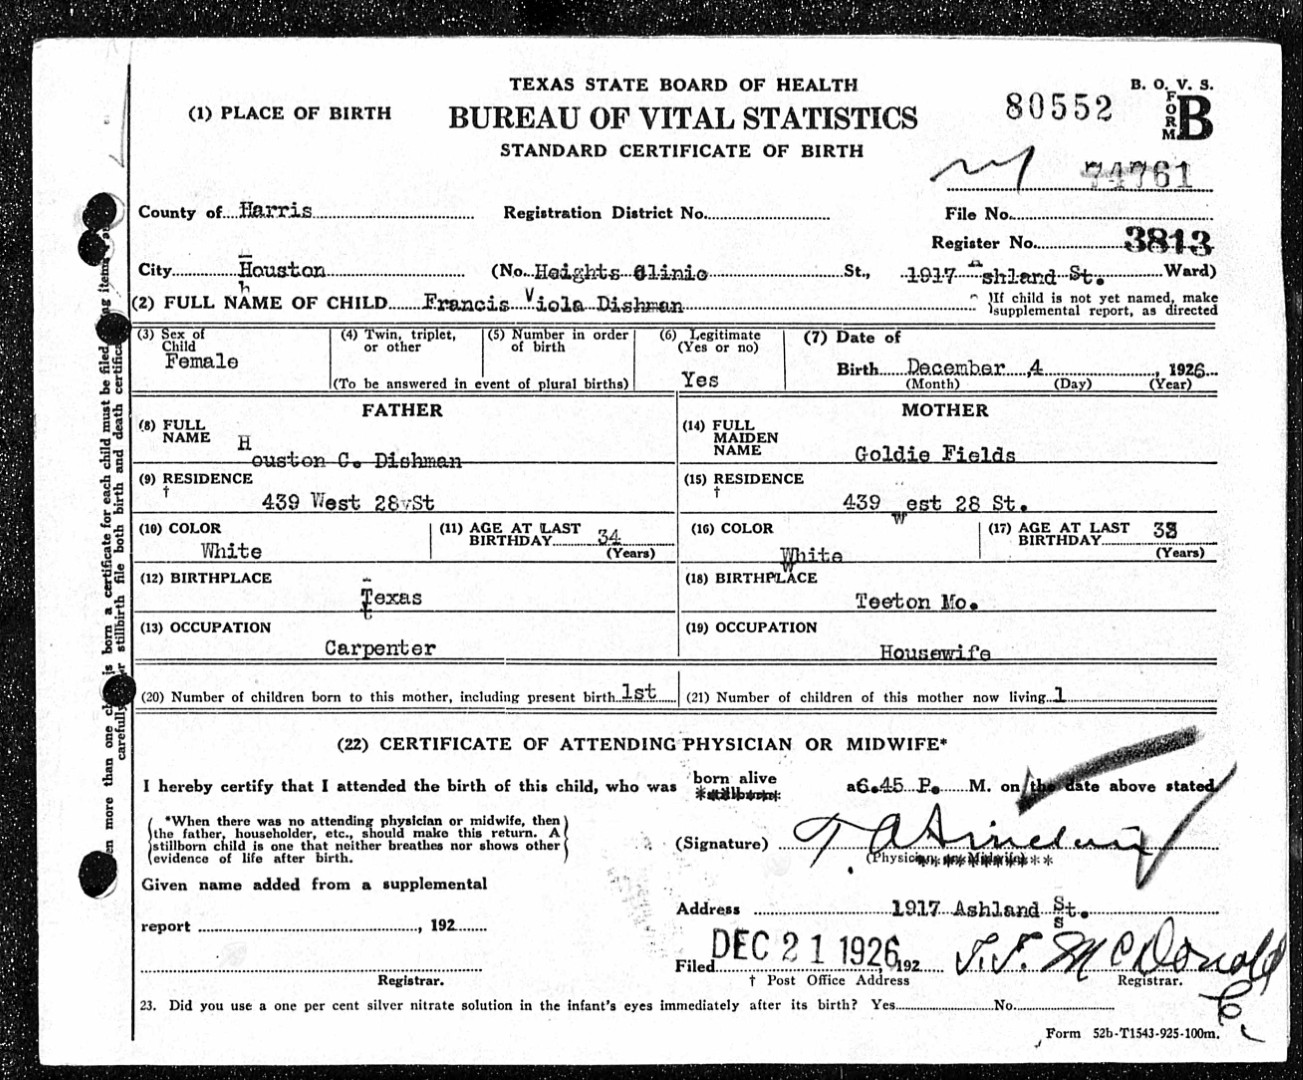 TEXAS STATE BOARD OF HEALTH
B. O. V. S.
(1) PLACE OF BIRTH
BUREAU OF VITAL STATISTICS
80552
FORM B
STANDARD CERTIFICATE OF BIRTH
74761
County of Harris
Registration District No.
File No.
Register No. 3813
City Houston (No. Heights Clinic St., 1917 Ashland St. Ward)
(2) FULL NAME OF CHILD Francis Viola Dishman
If child is not yet named, make
supplemental report, as directed
(3) Sex of
Child
Female
(4) Twin, triplet,
or other
(5) Number in order
of birth
(To be answered in event of plural births)
(6) Legitimate
(Yes or no)
Yes
(7) Date of
Birth December 4, 1926
(Month) (Day) (Year)
FATHER
(8) FULL
NAME
Houston C. Dishman
(9) RESIDENCE
†
439 West 28 St
(10) COLOR
White
(11) AGE AT LAST
BIRTHDAY 34
(Years)
(12) BIRTHPLACE
Texas
(13) OCCUPATION
Carpenter
MOTHER
(14) FULL
MAIDEN
NAME
Goldie Fields
(15) RESIDENCE
†
439 West 28 St.
(16) COLOR
White
(17) AGE AT LAST
BIRTHDAY
(Years)
(18) BIRTHPLACE
Teeton Mo.
(19) OCCUPATION
Housewife
(20) Number of children born to this mother, including present birth 1st
(21) Number of children of this mother now living 1
(22) CERTIFICATE OF ATTENDING PHYSICIAN OR MIDWIFE*
I hereby certify that I attended the birth of this child, who was born alive a6.45 P. M. on the date above stated.
*When there was no attending physician or midwife, then
the father, householder, etc., should make this return. A
stillborn child is one that neither breathes nor shows other
evidence of life after birth.
(Signature) T. A. Sinclair
(Physician or Midwife)
Given name added from a supplemental
report , 192
Registrar.
Address 1917 Ashland St.
Filed DEC 21 1926, 192
† Post Office Address
McDonald
Registrar.
23. Did you use a one per cent silver nitrate solution in the infant's eyes immediately after its birth? Yes No.
Form 52b-T1543-925-100m.
born a certificate for each child must be filed
stillbirth file both birth and death